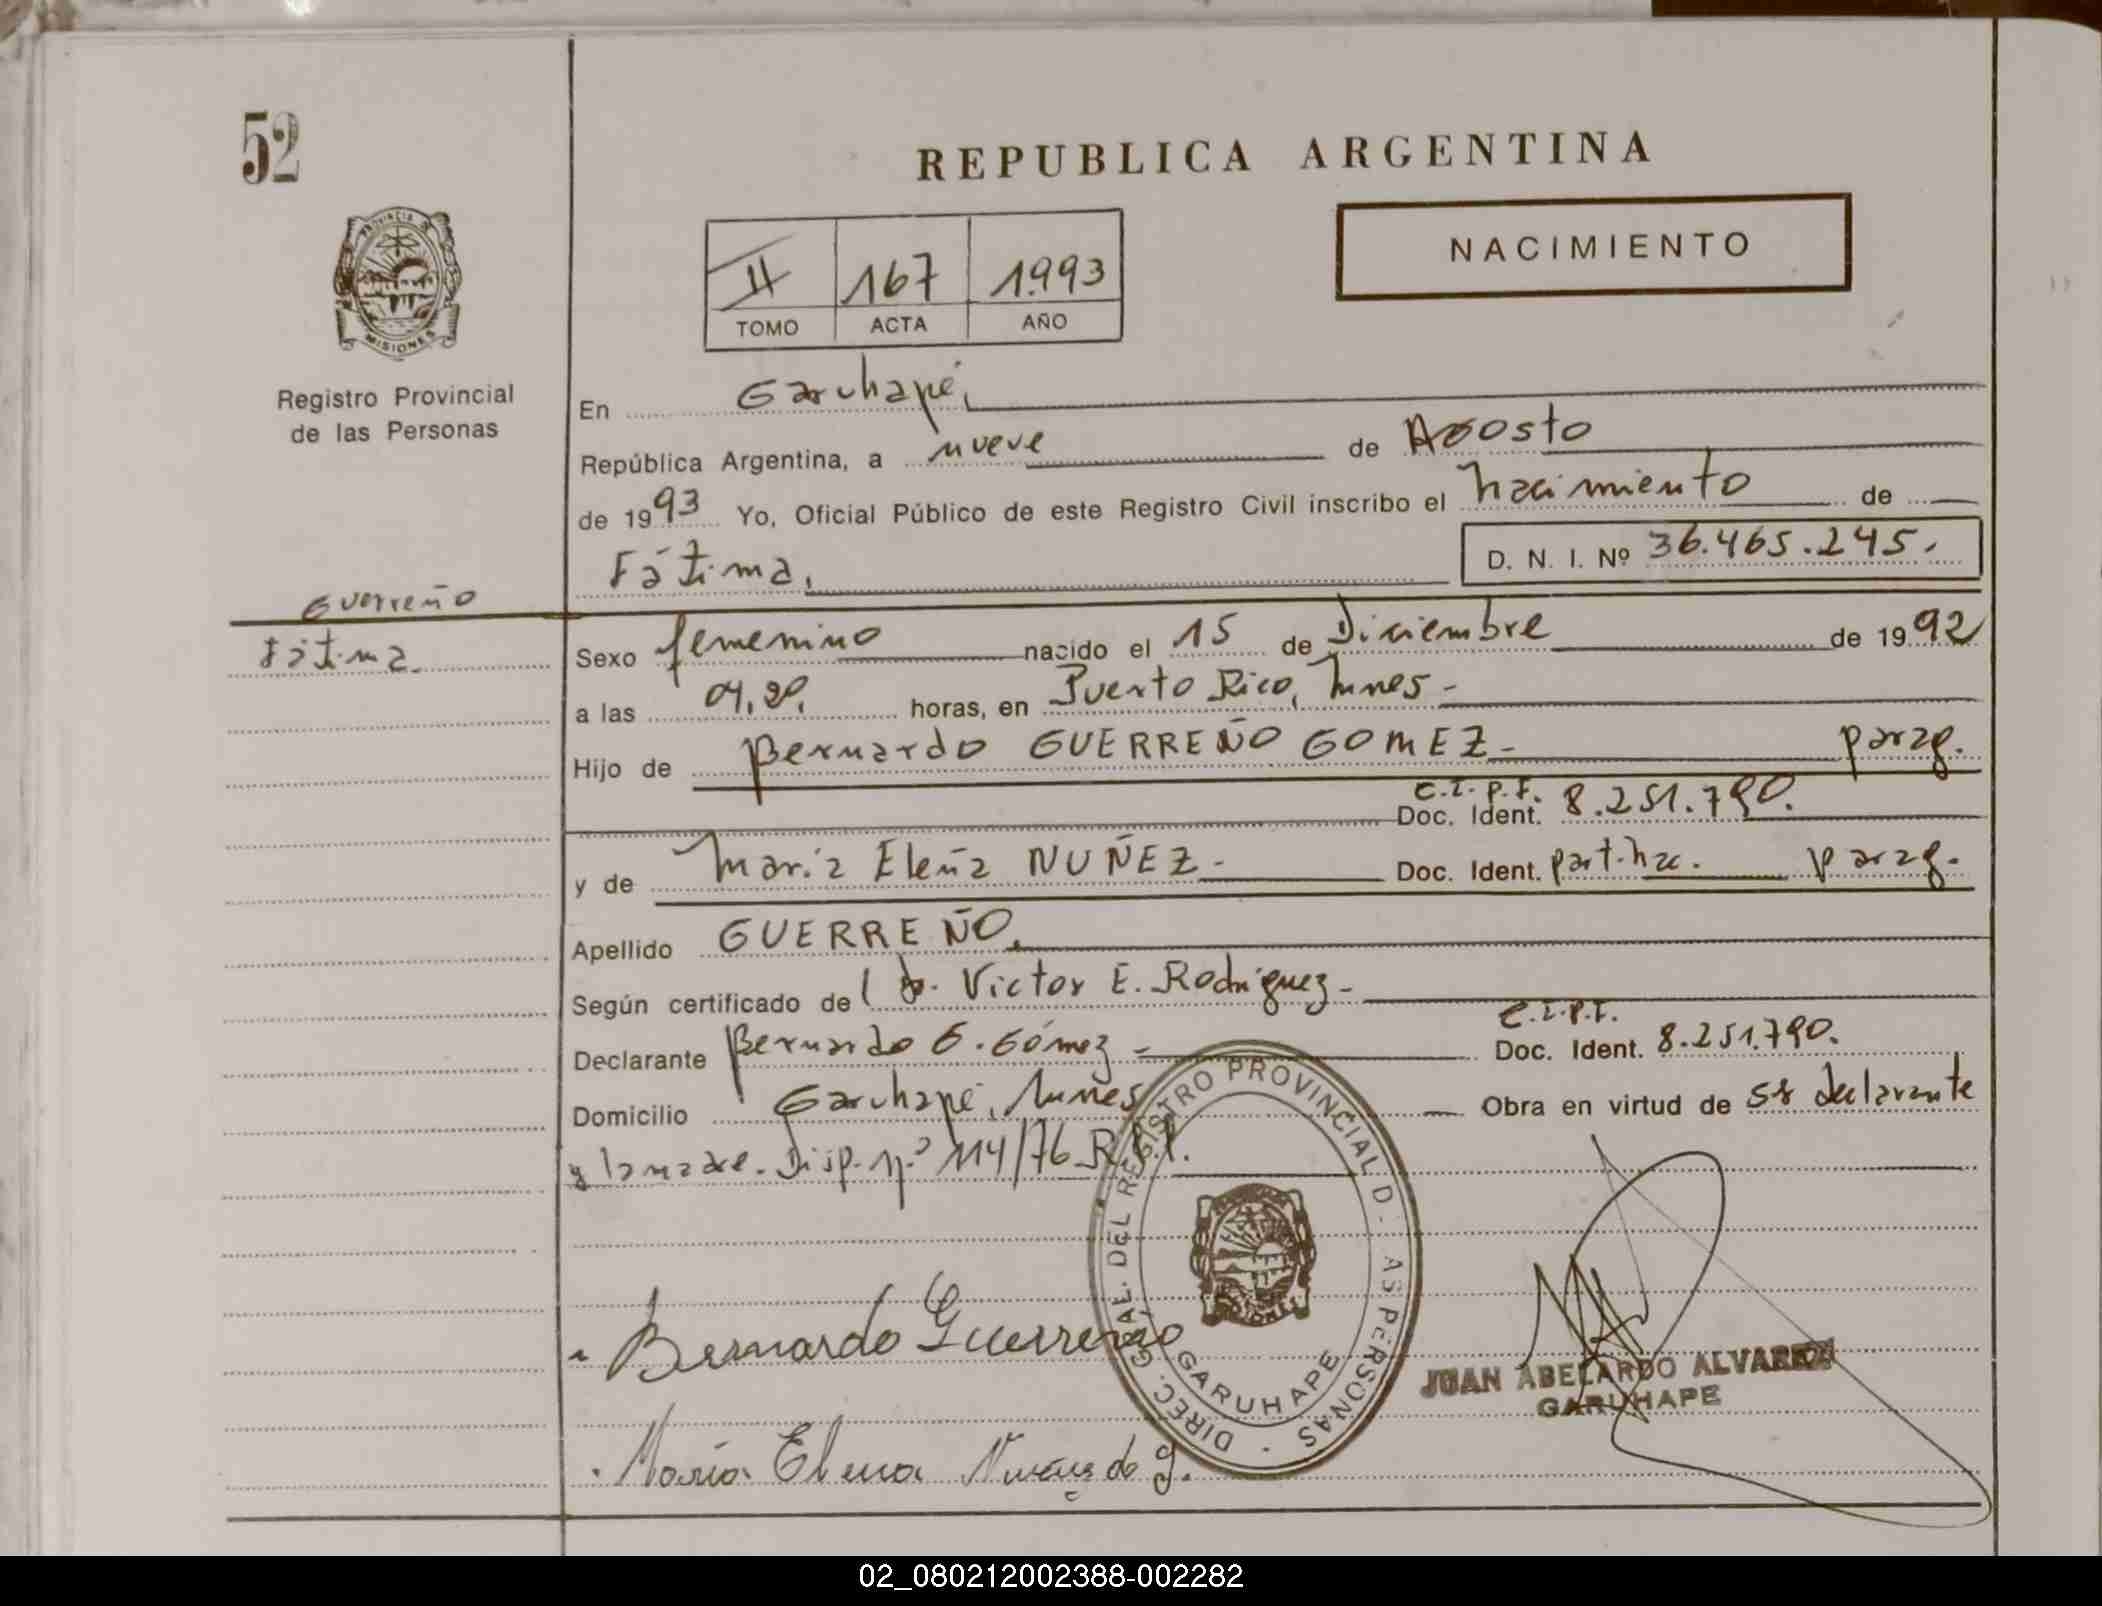 52
REPUBLICA ARGENTINA
NACIMIENTO
II 167 1.993
TOMO ACTA AÑO
PROVINCIA DE
MISIONES
Registro Provincial
de las Personas
En Garuhapé,
República Argentina, a nueve de Agosto
de 1993 Yo, Oficial Público de este Registro Civil inscribo el nacimiento de
Fátima, D. N. I. Nº 36.465.245.
Guerreño
Fátima.
Sexo femenino nacido el 15 de Diciembre de 1992
a las horas, en Puerto Rico, Mnes-
Hijo de Bernardo GUERREÑO GOMEZ- parag.
C.I.P.F.
Doc. Ident. 8.251.790.
y de María Elena NUÑEZ- Doc. Ident. part. nac. parag.
Apellido GUERREÑO.
Según certificado de Victor E. Rodriguez-
C.I.P.F.
Declarante Bernardo G. Gómez- Doc. Ident. 8.251.790.
Domicilio Garuhapé, Mnes Obra en virtud de ser declarante
y la madre. Disp. nº 114/76 R.P.P.
DIREC. GRAL. DEL REGISTRO PROVINCIAL D. AS PERSONAS
GARUHAPE
MISIONES
Bernardo Guerreño
JUAN ABELARDO ALVAREZ
GARUHAPE
María Elena Nuñez de G.
02_080212002388-002282